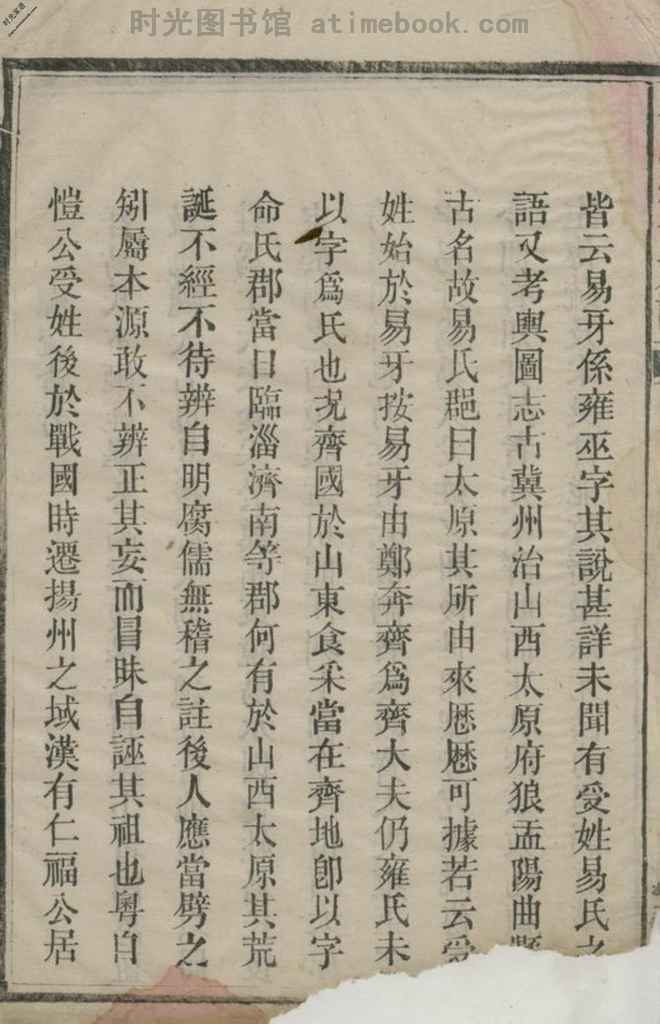 时光图书馆 atimebook.com
皆云易牙係雍巫字其說甚詳未聞有受姓易氏之
語又考輿圖志古冀州治山西太原府狼盂陽曲縣
古名故易氏郡曰太原其所由來厯厯可據若云受
姓始於易牙按易牙由鄭奔齊爲齊大夫仍雍氏未
以字爲氏也况齊國於山東食采當在齊地卽以字
命氏郡當曰臨淄濟南等郡何有於山西太原其荒
誕不經不待辨自明腐儒無稽之註後人應當劈之
矧屬本源敢不辨正其妄而冒昧自誣其祖也粵自
愷公受姓後於戰國時遷揚州之域漢有仁福公居